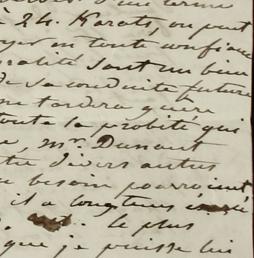 à 24. Karats, on peut
en toute confiance
sont un bien
de sa conduite future
ne tardera guère
toute la probité qui
mr. Dunant
divers autres
besoin pourroient
il a longtems
le plus
que je puisse lui